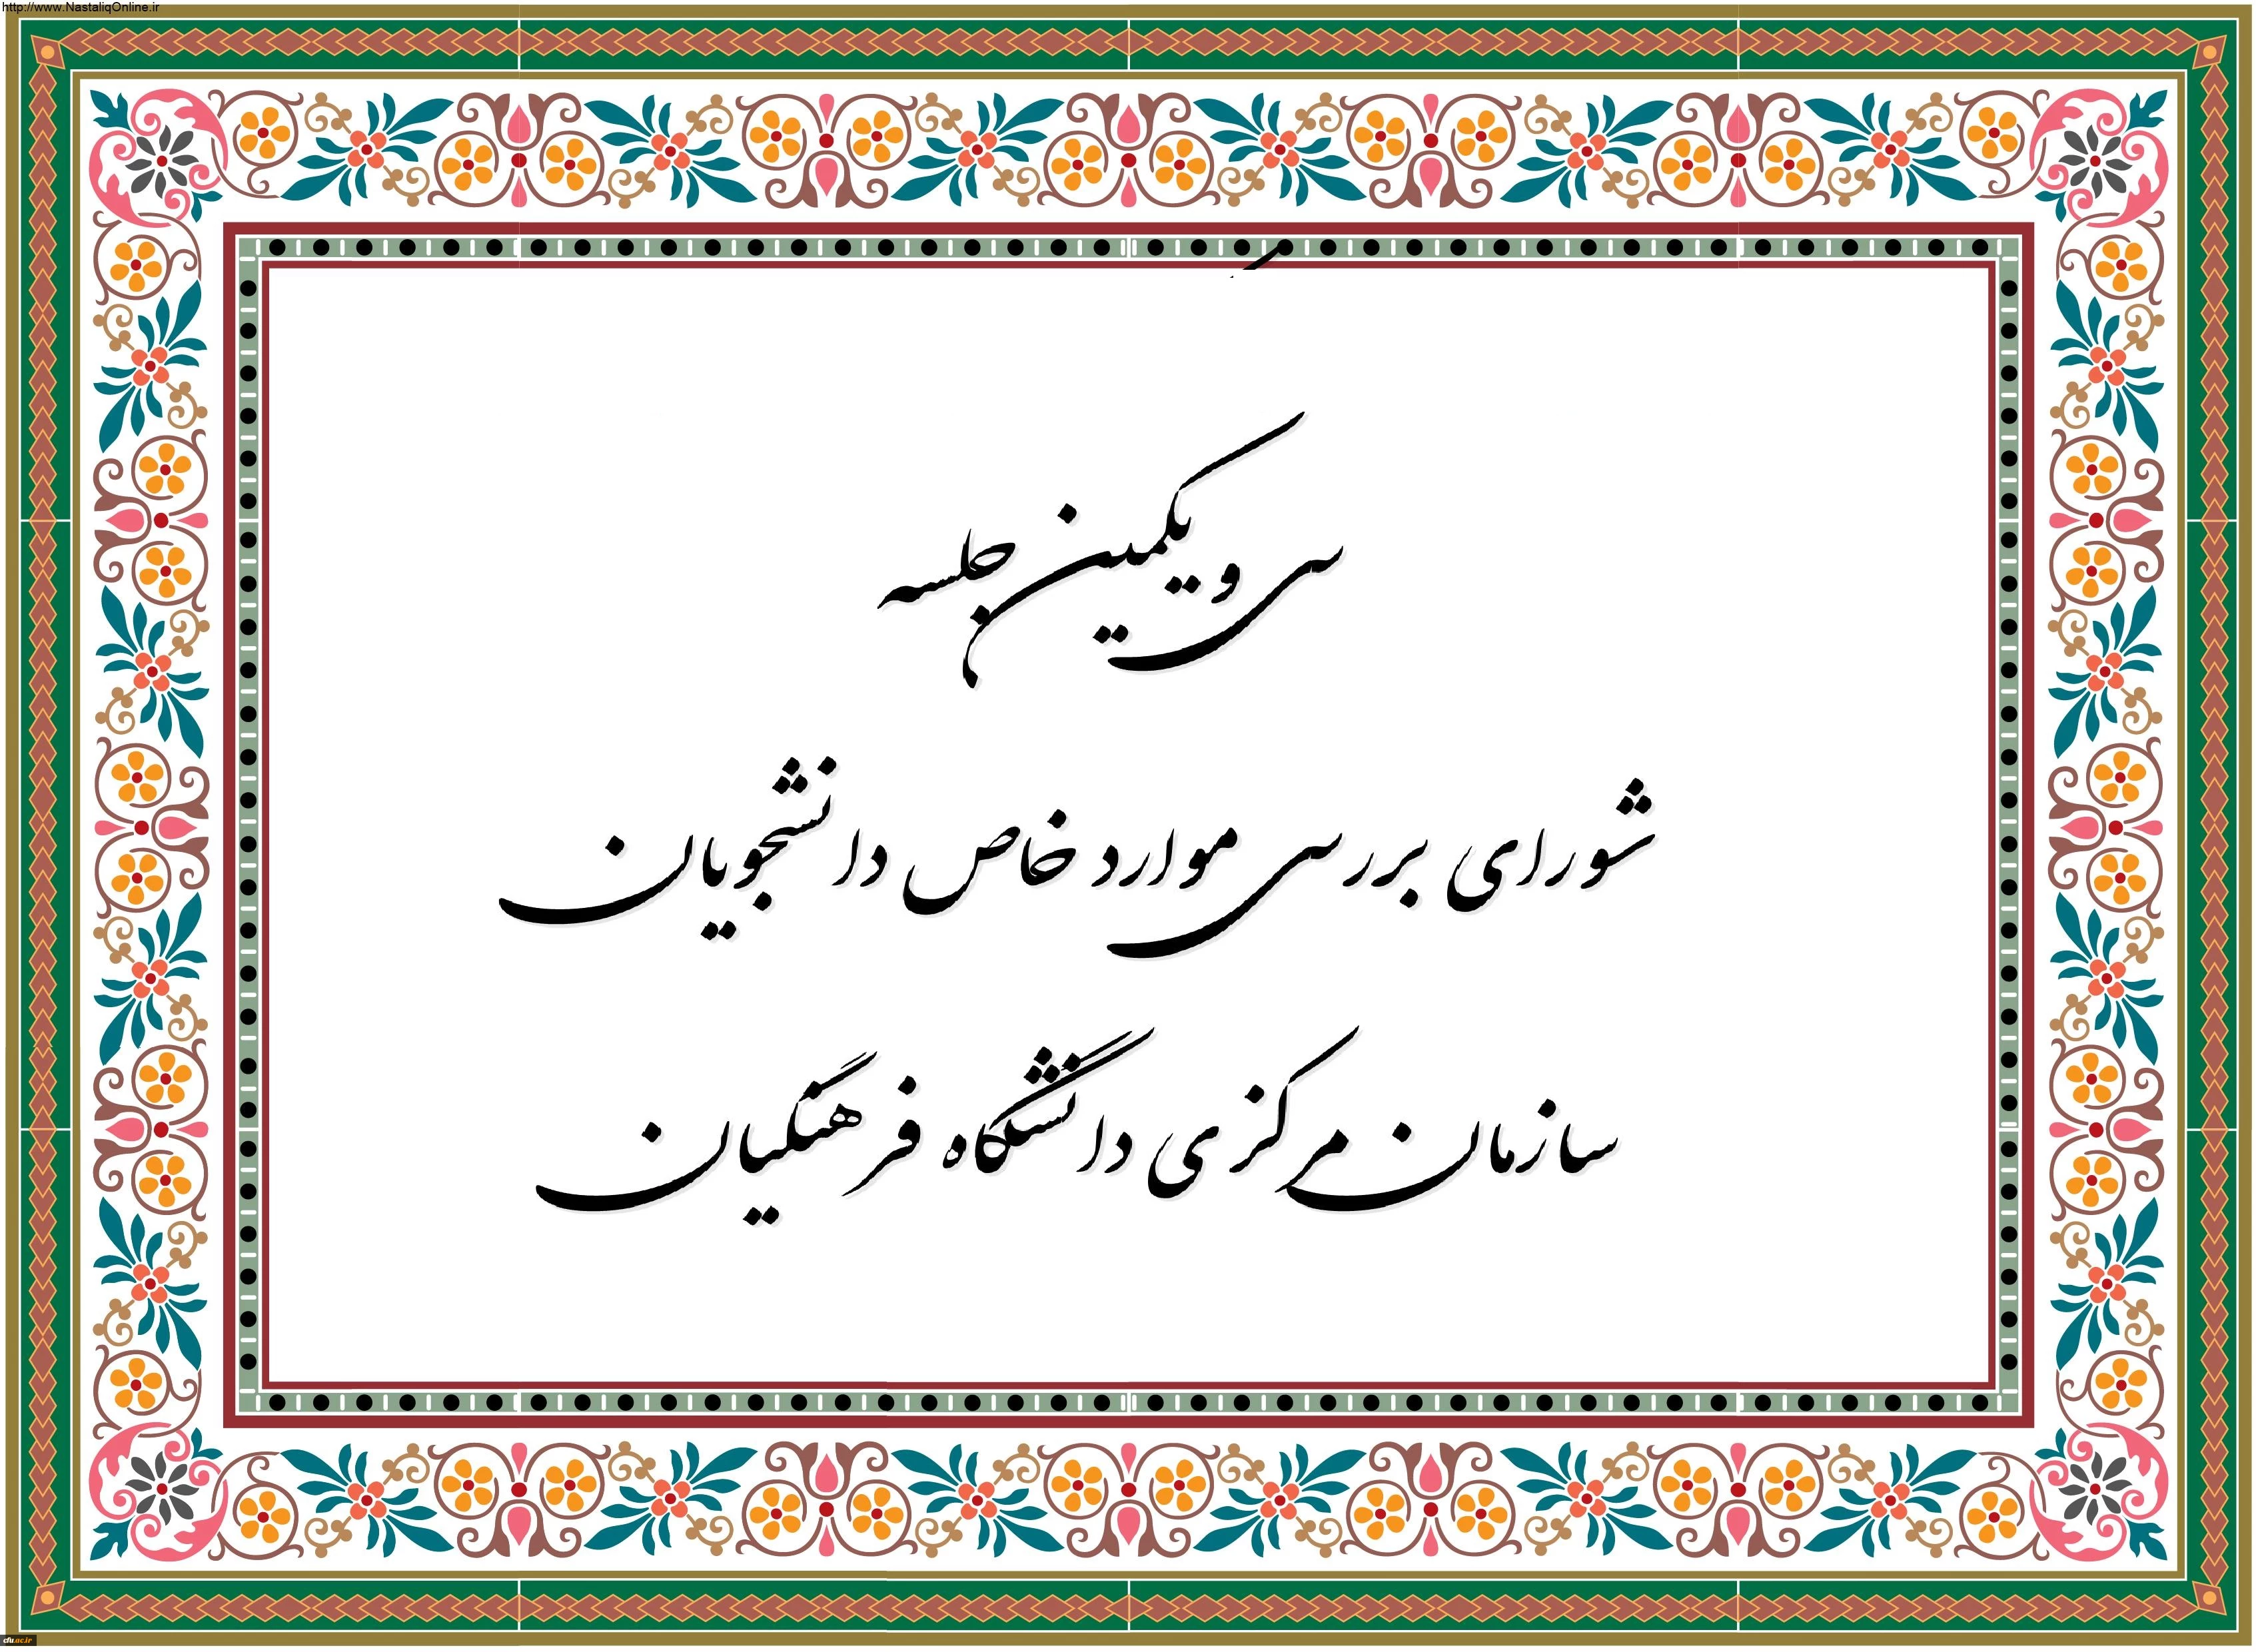 http://www.NastaliqOnline.ir
سی و یکمین جلسه
شورای بررسی موارد خاص دانشجویان
سازمان مرکزی دانشگاه فرهنگیان
cfu.ac.ir